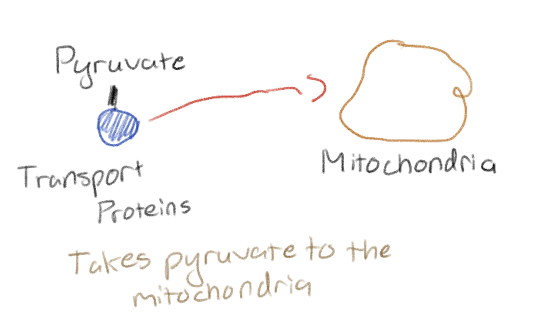 Pyruvate
Transport
Proteins
Mitochondria
Takes pyruvate to the
mitochondria